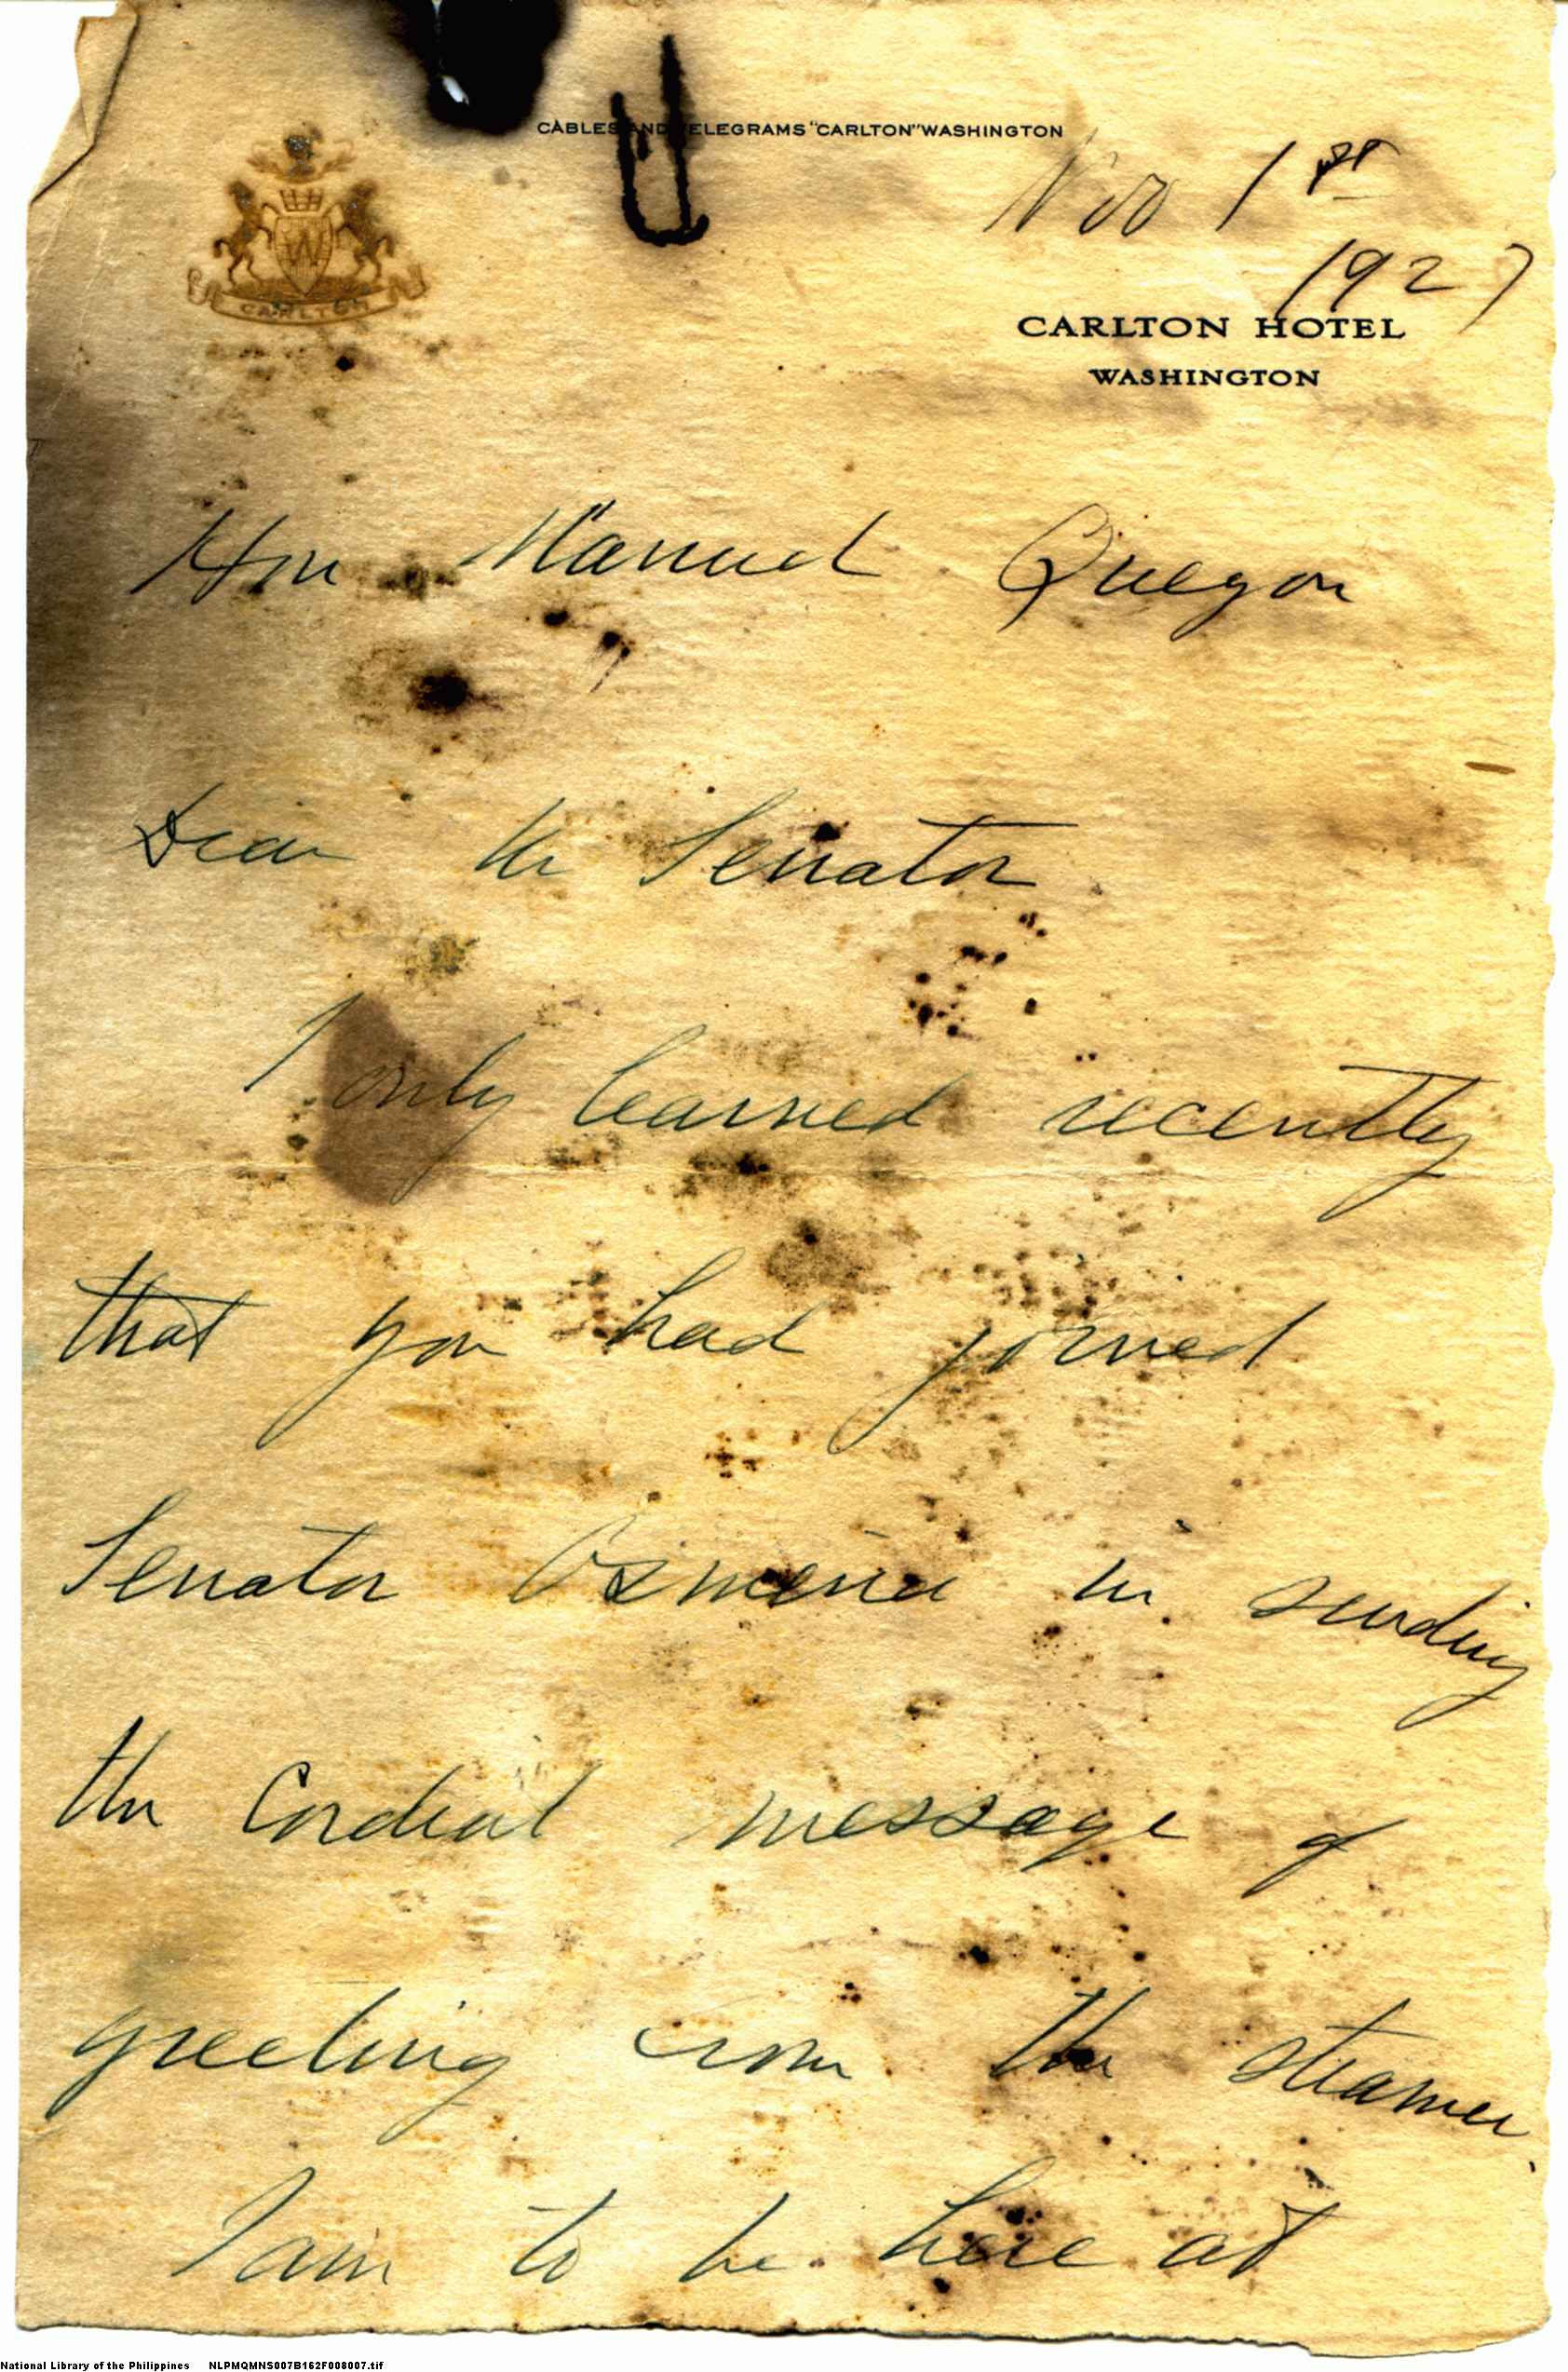 CABLES AND TELEGRAMS "CARLTON" WASHINGTON
Nov 1st
1927
W
CARLTON
CARLTON HOTEL
WASHINGTON
Hon Manuel Quezon
Dear Mr Senator
I only learned recently
that you had joined
Senator Osmena in sending
the Cordial message of
greeting from the steamer.
I am to be here at
National Library of the Philippines NLPMQMNS007B162F008007.tif